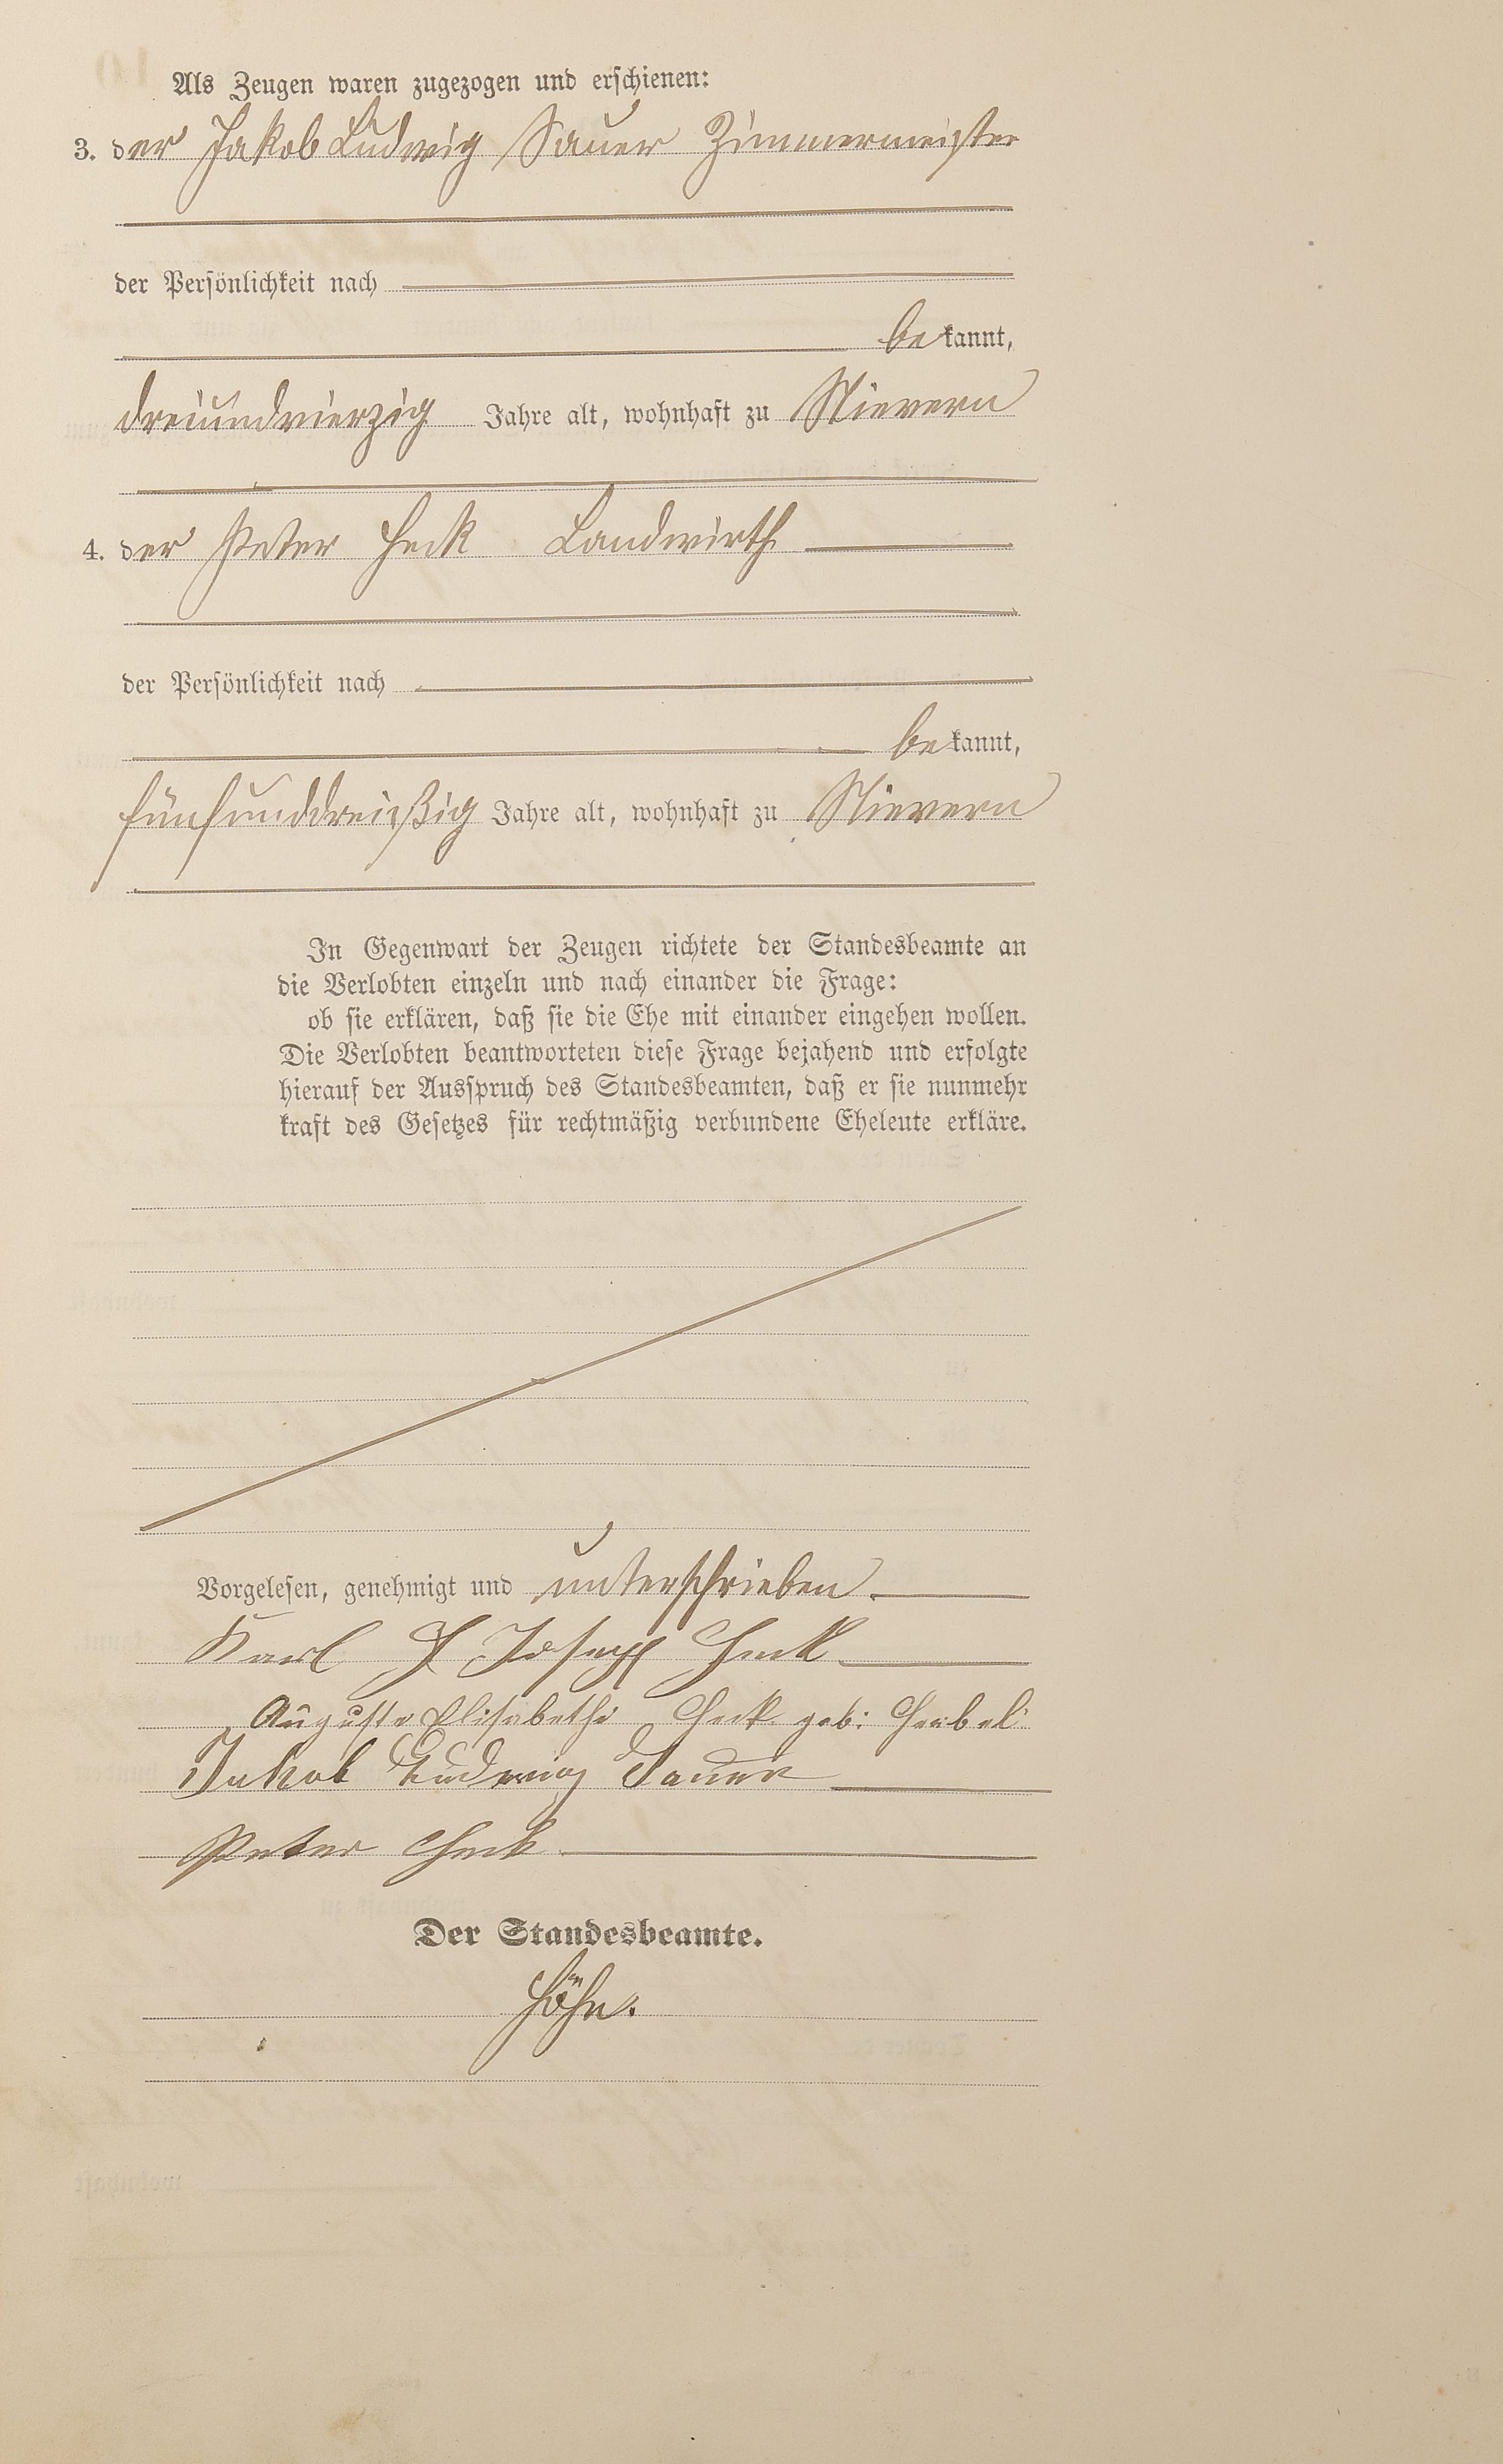 Als Zeugen waren zugezogen und erschienen:
3. der Jakob Ludwig Sauer Zimmermeister
der Persönlichkeit nach
bekannt,
dreiundvierzig Jahre alt, wohnhaft zu Nievern
4. der Peter Heck Landwirth
der Persönlichkeit nach
bekannt,
fünfunddreißig Jahre alt, wohnhaft zu Nievern
In Gegenwart der Zeugen richtete der Standesbeamte an
die Verlobten einzeln und nach einander die Frage:
ob sie erklären, daß sie die Ehe mit einander eingehen wollen.
Die Verlobten beantworteten diese Frage bejahend und erfolgte
hierauf der Ausspruch des Standesbeamten, daß er sie nunmehr
kraft des Gesetzes für rechtmäßig verbundene Eheleute erkläre.
Vorgelesen, genehmigt und unterschrieben
Karl Joseph Heck
Auguste Elisabethe Heck geb:
Jakob Ludwig Sauer
Peter Heck
Der Standesbeamte.
Höhn.